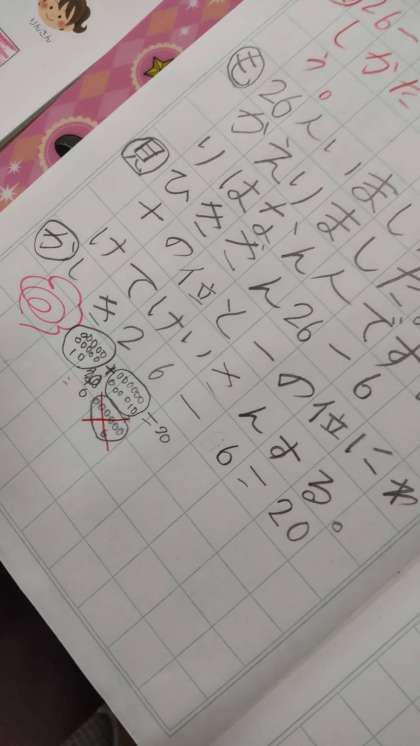 りんさん
26-
しかた
う。
も 26人いまし
かえりました。
りはなん人です
見 ひきざん26-6
十の位と一の位にわ
けてけいさんする。
か しき26-6=20
10
10
=20
=
6